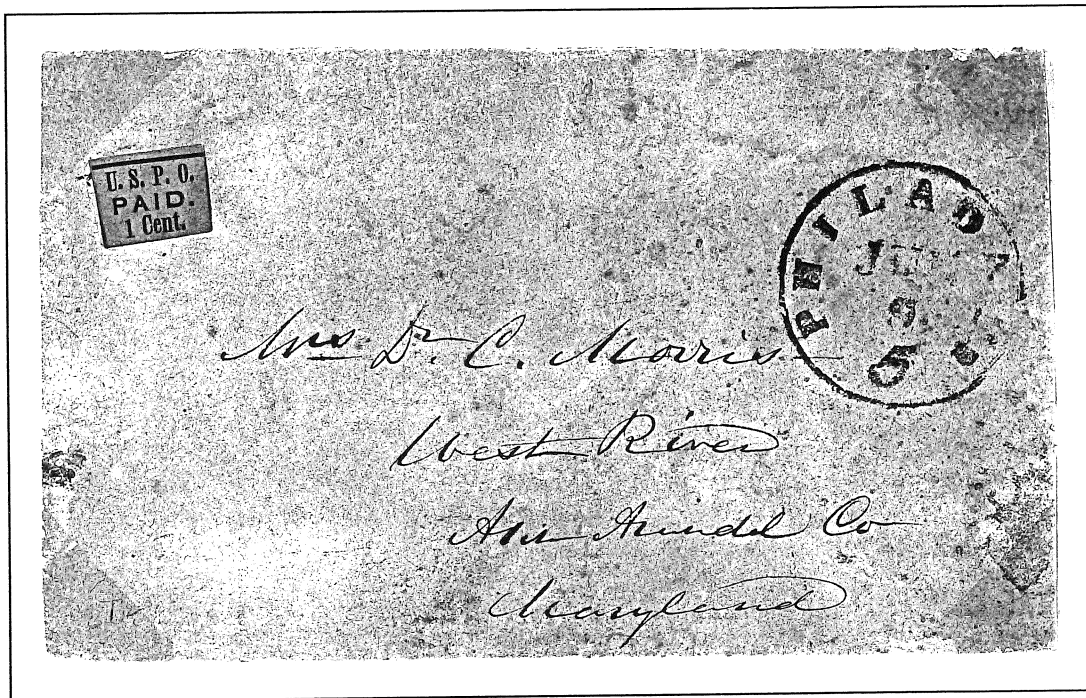 U. S. P. O.
PAID.
1 Cent.
PHILAD
5
Mrs Dr. C. Morris
West River
Ann Arundel Co
Maryland